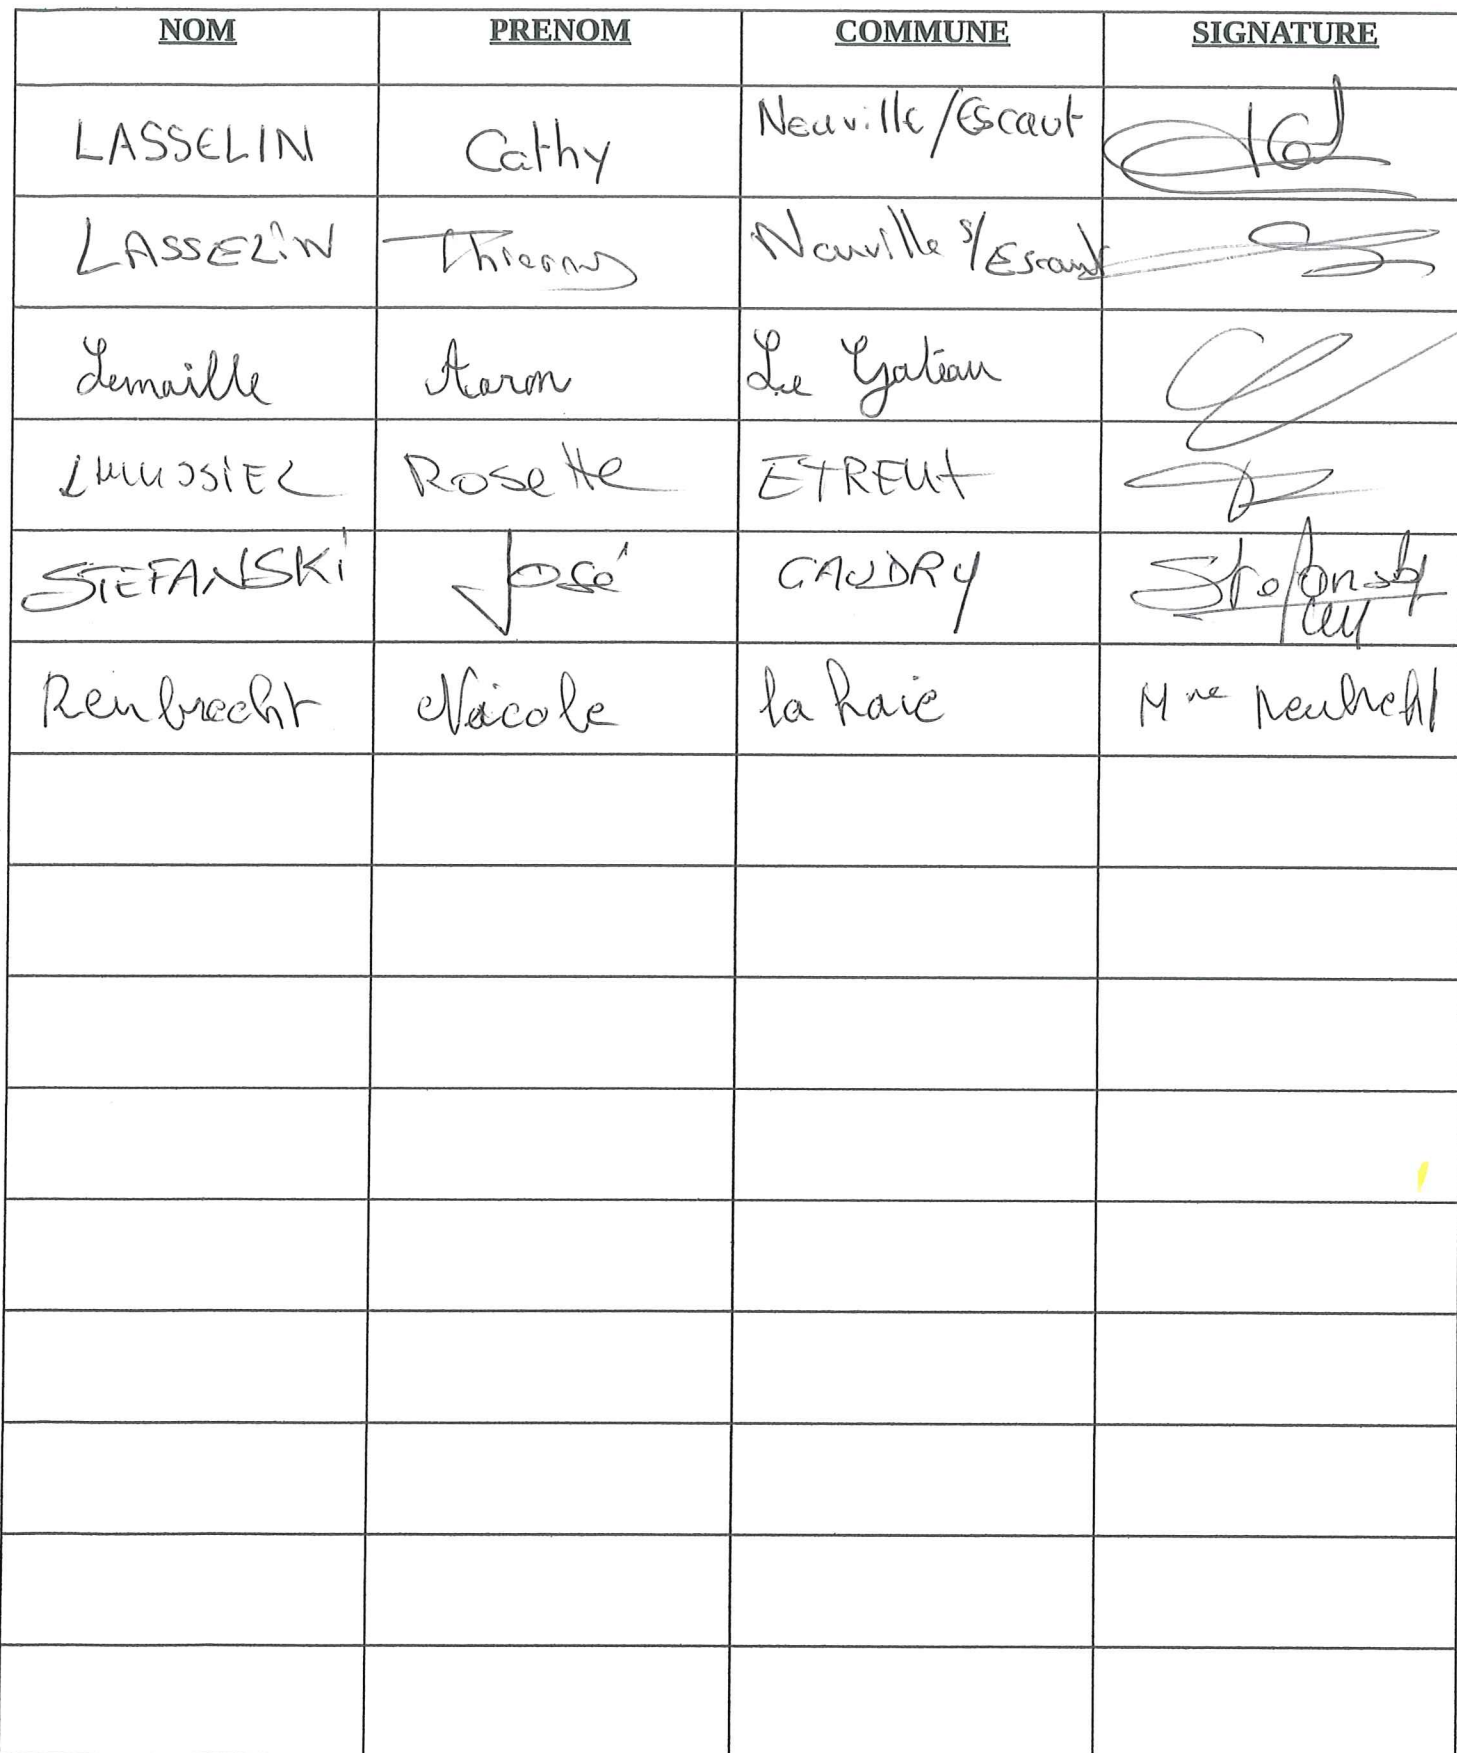 NOM PRENOM COMMUNE SIGNATURE
LASSELIN Cathy Neuville/Escaut
LASSELIN Thierry Neuville s/Escaut
Lemaille Aaron Le Gateau
Rosette ETREUX
STEFANSKI José CAUDRY Stefanski
Reubrecht Nicole la haie Mme Reubrecht